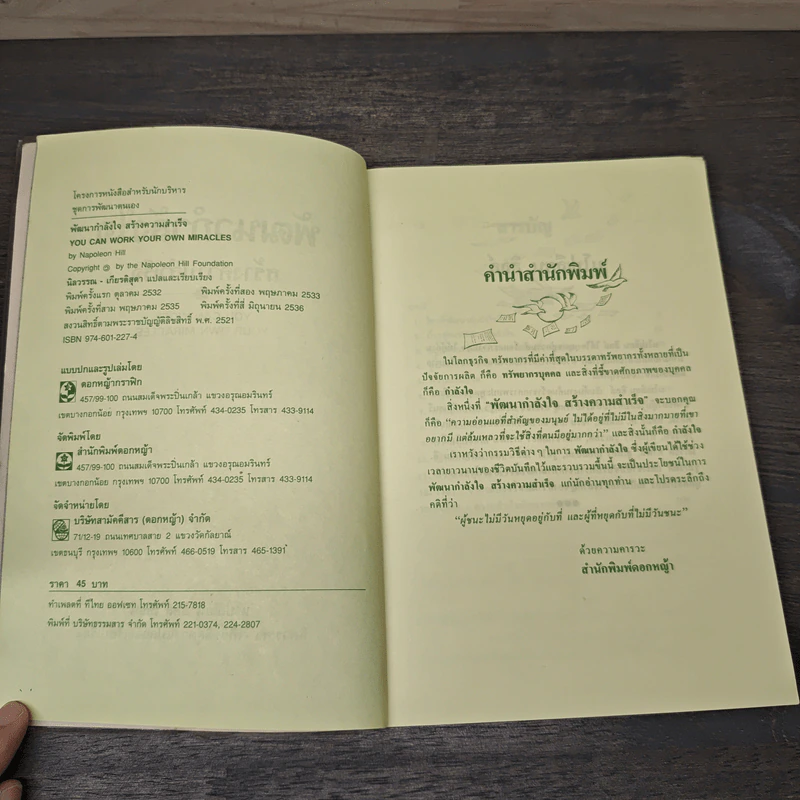 โครงการหนังสือสำหรับนักบริหาร
ชุดการพัฒนาตนเอง
พัฒนากำลังใจ สร้างความสำเร็จ
YOU CAN WORK YOUR OWN MIRACLES
by Napoleon Hill
Copyright @ by the Napoleon Hill Foundation
นิลวรรณ - เกียรติสุดา แปลและเรียบเรียง
พิมพ์ครั้งแรก ตุลาคม 2532 พิมพ์ครั้งที่สอง พฤษภาคม 2533
พิมพ์ครั้งที่สาม พฤษภาคม 2535 พิมพ์ครั้งที่สี่ มิถุนายน 2536
สงวนสิทธิ์ตามพระราชบัญญัติลิขสิทธิ์ พ.ศ. 2521
ISBN 974-601-227-4
แบบปกและรูปเล่มโดย
ดอกหญ้ากราฟิก
457/99-100 ถนนสมเด็จพระปิ่นเกล้า แขวงอรุณอมรินทร์
เขตบางกอกน้อย กรุงเทพฯ 10700 โทรศัพท์ 434-0235 โทรสาร 433-9114
จัดพิมพ์โดย
สำนักพิมพ์ดอกหญ้า
457/99-100 ถนนสมเด็จพระปิ่นเกล้า แขวงอรุณอมรินทร์
เขตบางกอกน้อย กรุงเทพฯ 10700 โทรศัพท์ 434-0235 โทรสาร 433-9114
จัดจำหน่ายโดย
บริษัทสามัคคีสาร (ดอกหญ้า) จำกัด
71/12-19 ถนนเทศบาลสาย 2 แขวงวัดกัลยาณ์
เขตธนบุรี กรุงเทพฯ 10600 โทรศัพท์ 466-0519 โทรสาร 465-1391
ราคา 45 บาท
ทำเพลตที่ ทีไทย ออฟเซท โทรศัพท์ 215-7818
พิมพ์ที่ บริษัทธรรมสาร จำกัด โทรศัพท์ 221-0374, 224-2807
คำนำสำนักพิมพ์
ในโลกธุรกิจ ทรัพยากรที่มีค่าที่สุดในบรรดาทรัพยากรทั้งหลายที่เป็น
ปัจจัยการผลิต ก็คือ ทรัพยากรบุคคล และสิ่งที่ชี้ขาดศักยภาพของบุคคล
ก็คือ กำลังใจ
สิ่งหนึ่งที่ "พัฒนากำลังใจ สร้างความสำเร็จ" จะบอกคุณ
ก็คือ "ความอ่อนแอที่สำคัญของมนุษย์ ไม่ได้อยู่ที่ไม่มีในสิ่งมากมายที่เขา
อยากมี แต่ล้มเหลวที่จะใช้สิ่งที่ตนมีอยู่มากกว่า" และสิ่งนั้นก็คือ กำลังใจ
เราหวังว่ากรรมวิธีต่างๆ ในการ พัฒนากำลังใจ ซึ่งผู้เขียนได้ใช้ช่วง
เวลายาวนานของชีวิตบันทึกไว้และรวบรวมขึ้นนี้ จะเป็นประโยชน์ในการ
พัฒนากำลังใจ สร้างความสำเร็จ แก่นักอ่านทุกท่าน และโปรดระลึกถึง
คติที่ว่า
"ผู้ชนะไม่มีวันหยุดอยู่กับที่ และผู้ที่หยุดกับที่ไม่มีวันชนะ"
ด้วยความคารวะ
สำนักพิมพ์ดอกหญ้า